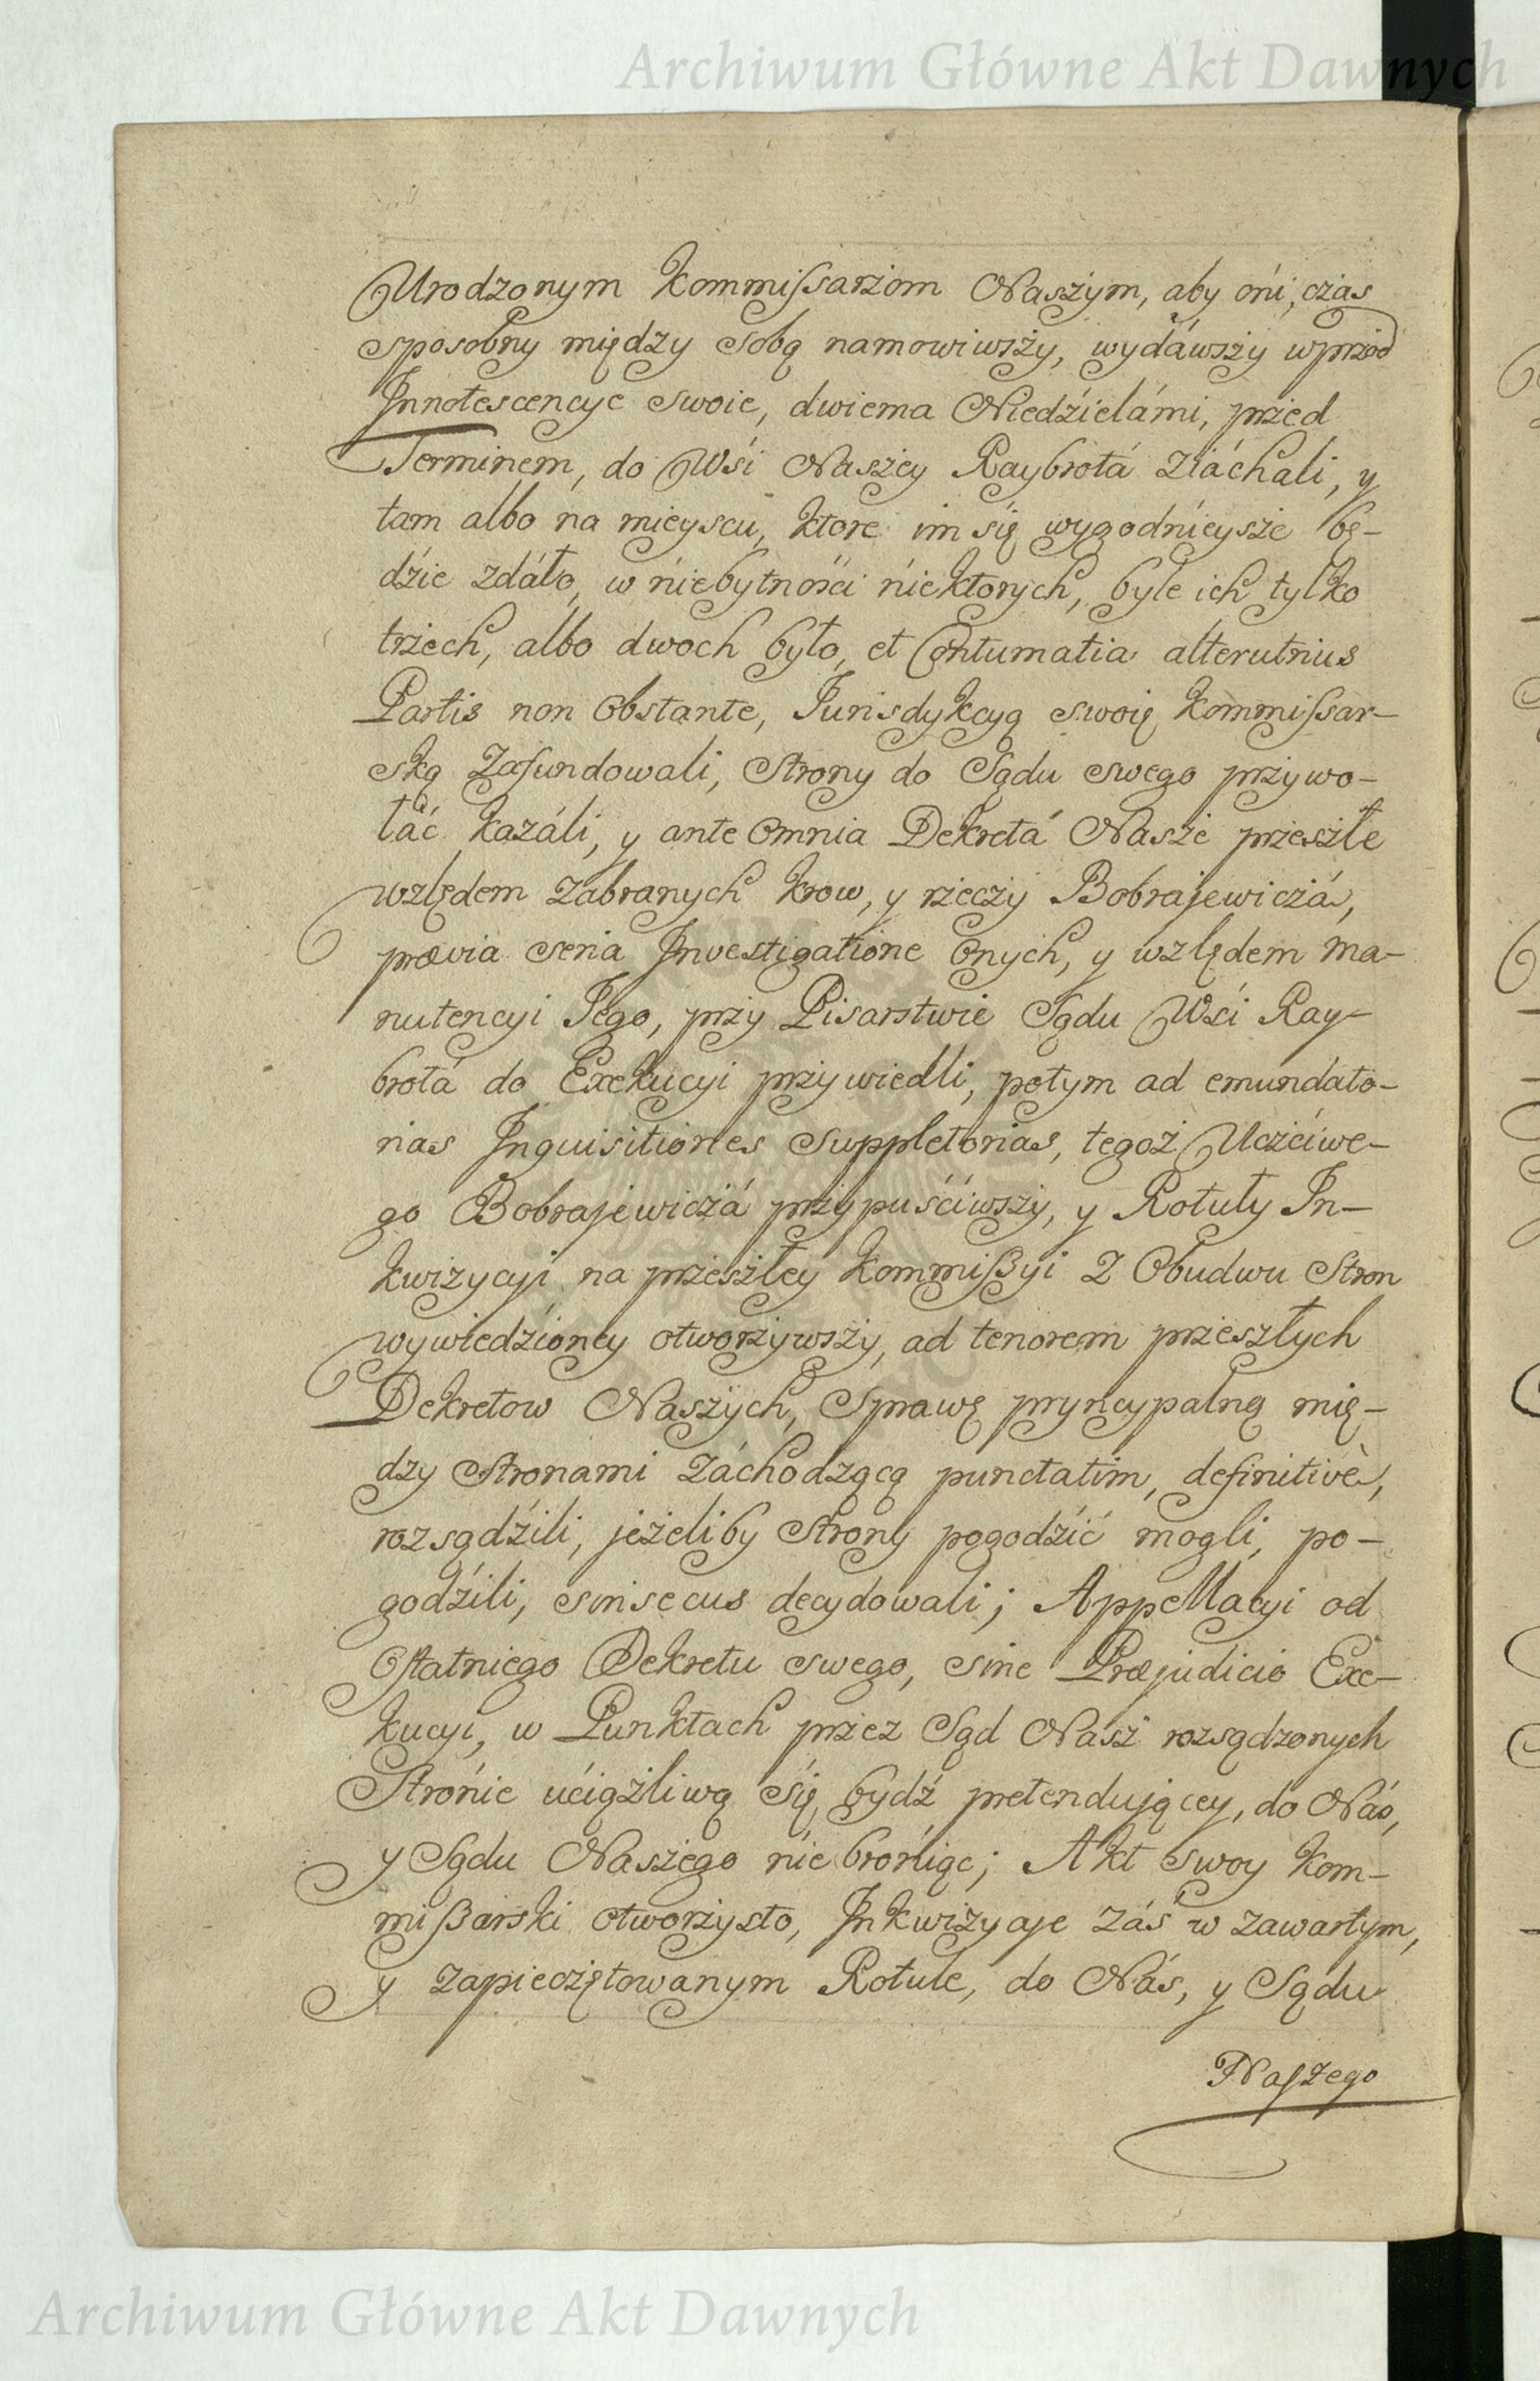 Archiwum Główne Akt Dawnych
Urodzonym Kommissarzom Naszym, aby oni, czas
sposobny między sobą namowiwszy, wydawszy wprzod
Innotescencye swoie, dwiema Niedzielámi, przed
Terminem, do Wśi Naszey Raybrotá ziáchali, y
tam albo na mieyscu, ktore im się wygodnieysze bę-
dźie zdáło, w niebytnośći niektorych, byle ich tylko
trzech, albo dwoch było, et Contumatia alterutrius
Partis non obstante, Iurisdykcyą swoię Kommissar-
ską zafundowali, Strony do Sądu swego przywo-
łáć kazáli, y ante omnia Dekretá Nasze przeszłe
względem zabranych krow, y rzeczy Bobrajewiczá,
prævia seria Investigatione onych, y względem ma-
nutencyi Iego, przy Pisarstwie Sądu Wśi Ray-
brotá do Exekucyi przywiedli, potym ad emundato-
rias Inquisitiones Suppletorias, tegoż Uczćiwe-
go Bobrajewiczá przypuśćiwszy, y Rotuły In-
kwizycyi na przeszłey Kommißyi z Obudwu Stron
wywiedźioney otworzywszy, ad tenorem przeszłych
Dekretow Naszych, Sprawę pryncypalną mię-
dzy Stronami záchodzącą punctatim, definitivè,
rozsądźili, jeżeliby Strony pogodźić mogli, po-
godźili, sinsecus decydowali; Appellacyi od
Ostatniego Dekretu swego, sine Præjudicio Exe-
kucyi, w Punktach przez Sąd Nasz rozsądzonych
Stronie ućiążliwą się bydź pretendującey, do Nás,
y Sądu Naszego nie broniąc; Akt swoy Kom-
mißarski otworzysto, Inkwizycye záś w zawartym,
y zapieczętowanym Rotule, do Nás, y Sądu
Naszego
Archiwum Główne Akt Dawnych